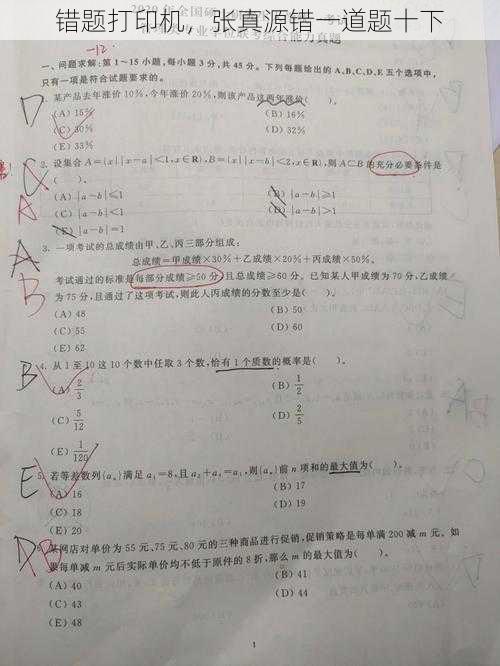 错题打印机，张真源错一道题十下
-12
一、问题求解:第1～15小题,每小题3分,共45分。下列每题给出的A、B、C、D、E五个选项中,
只有一项是符合试题要求的。
D
1. 某产品去年涨价10%,今年涨价20%,则该产品这两年涨价(    )。
(A) 15%
(B) 16%
(C) 30%
(D) 32%
(E) 33%
2. 设集合A={x||x-a|<1,x∈R},B={x||x-b|<2,x∈R},则A⊂B的充分必要条件是
(    )。
A
(A) |a-b|≤1
(B) |a-b|≥1
(C) |a-b|<1
(D) |a-b|>1
(E) |a-b|=1
A
3. 一项考试的总成绩由甲、乙、丙三部分组成:
总成绩=甲成绩×30%+乙成绩×20%+丙成绩×50%。
B
考试通过的标准是每部分成绩≥50分,且总成绩≥60分。已知某人甲成绩为70分,乙成绩
为75分,且通过了这项考试,则此人丙成绩的分数至少是(    )。
(A) 48
(B) 50
(C) 55
(D) 60
(E) 62
4. 从1至10这10个数中任取3个数,恰有1个质数的概率是(    )。
B
(A) 2/3
(B) 1/2
(C) 5/12
(D) 2/5
(E) 1/120
E
5. 若等差数列{aₙ}满足a₁=8,且a₂+a₄=a₁,则{aₙ}前n项和的最大值为(    )。
(A) 16
(B) 17
(C) 18
(D) 19
(E) 20
6. 某网店对单价为55元、75元、80元的三种商品进行促销,促销策略是每单满200减m元。如
D B
果每单减m元后实际单价均不低于原件的8折,那么m的最大值为(    )。
(A) 40
(B) 41
(C) 43
(D) 44
(E) 48
1